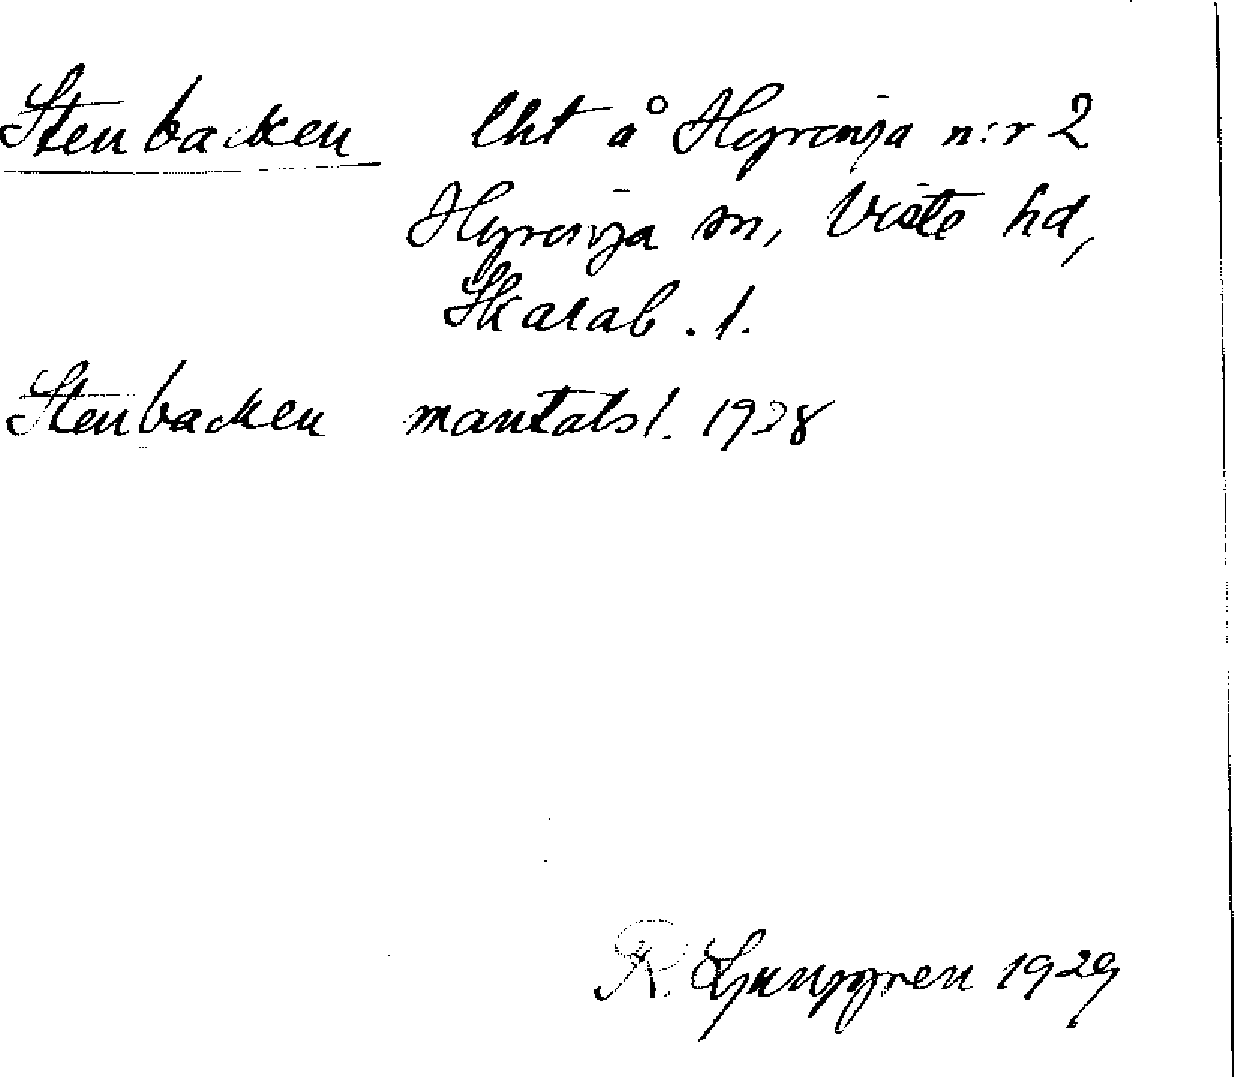 Stenbacken lht å Hyringa n:r 2
Hyringa sn, Viste hd,
Skarab. l.
Stenbacken mantalsl. 1928
R. Ljunggren 1929